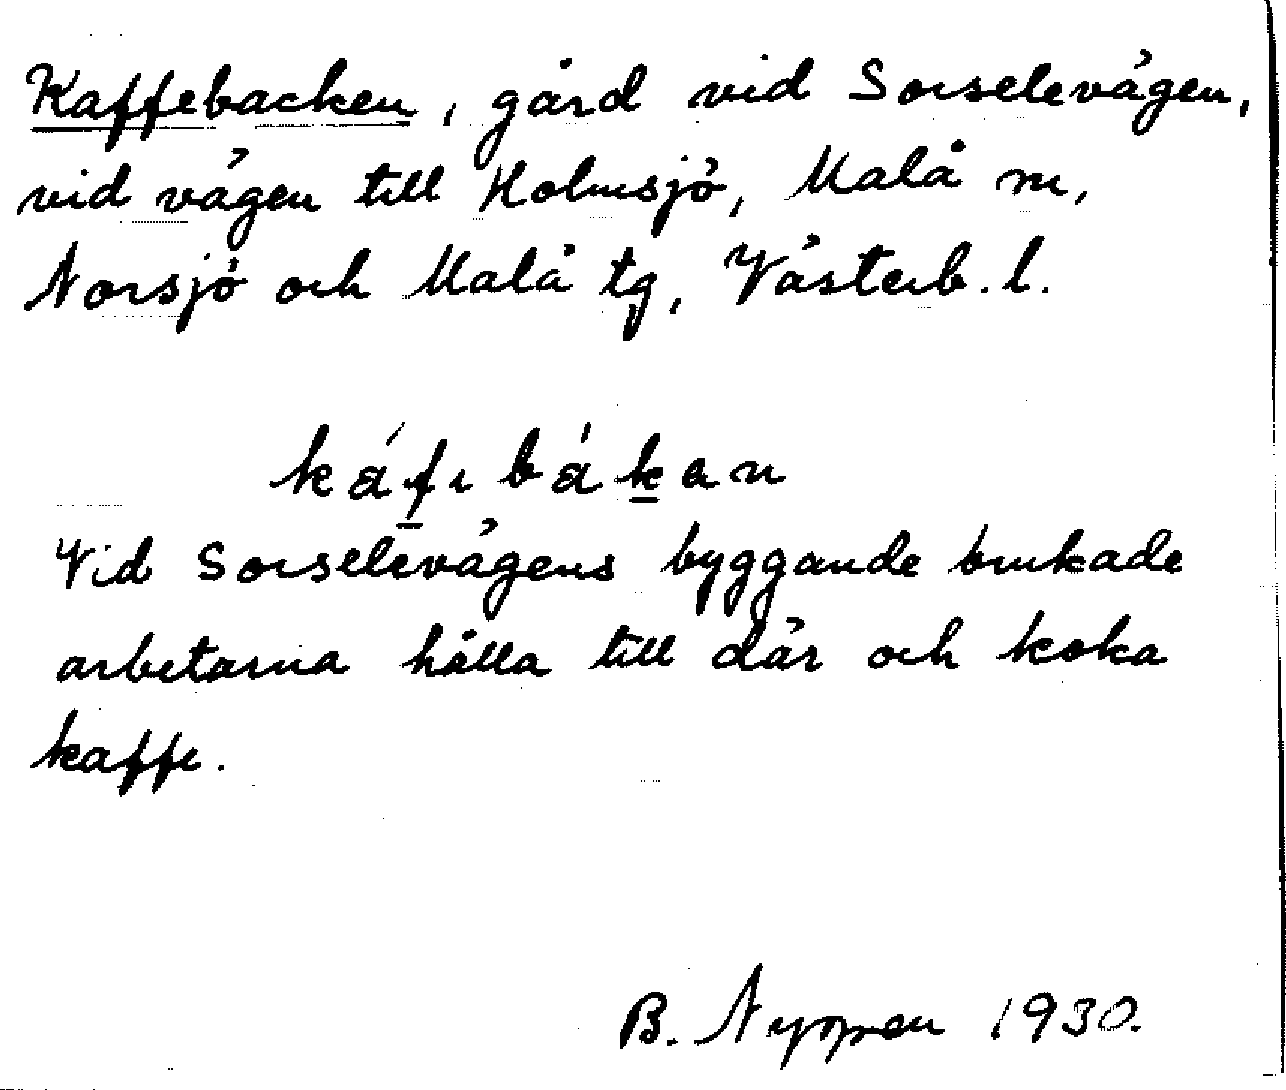 Kaffebacken, gård vid Sorselevägen,
vid vägen till Holmsjö, Malå sn,
Norsjö och Malå tg, Västerb. l.
káfı bákan
Vid Sorselevägens byggande brukade
arbetarna hålla till där och koka
kaffe.
B. Nyman 1930.